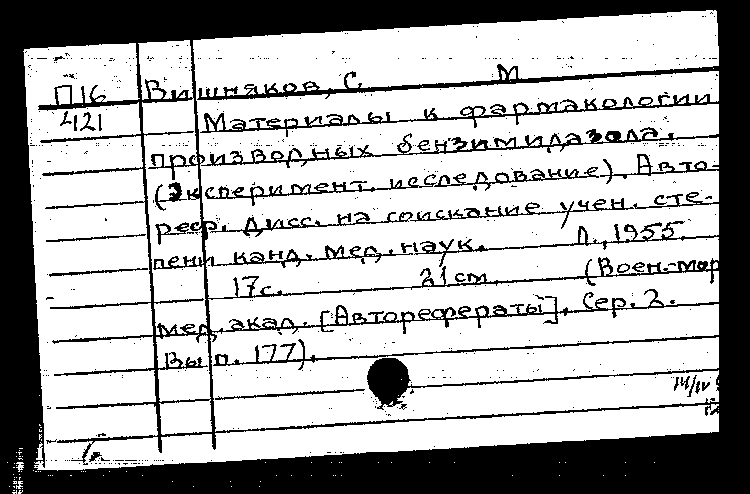 П16 Вишняков, С. М
421 Материалы к фармакологии
производных бензимидазола.
(Эксперимент. исследование). Авто-
реф. дисс. на соискание учен. сте-
пени канд. мед. наук. Л., 1955.
17с. 21см. (Воен.-мор
мед. акад. [Авторефераты]. Сер. 2.
Вып. 177).